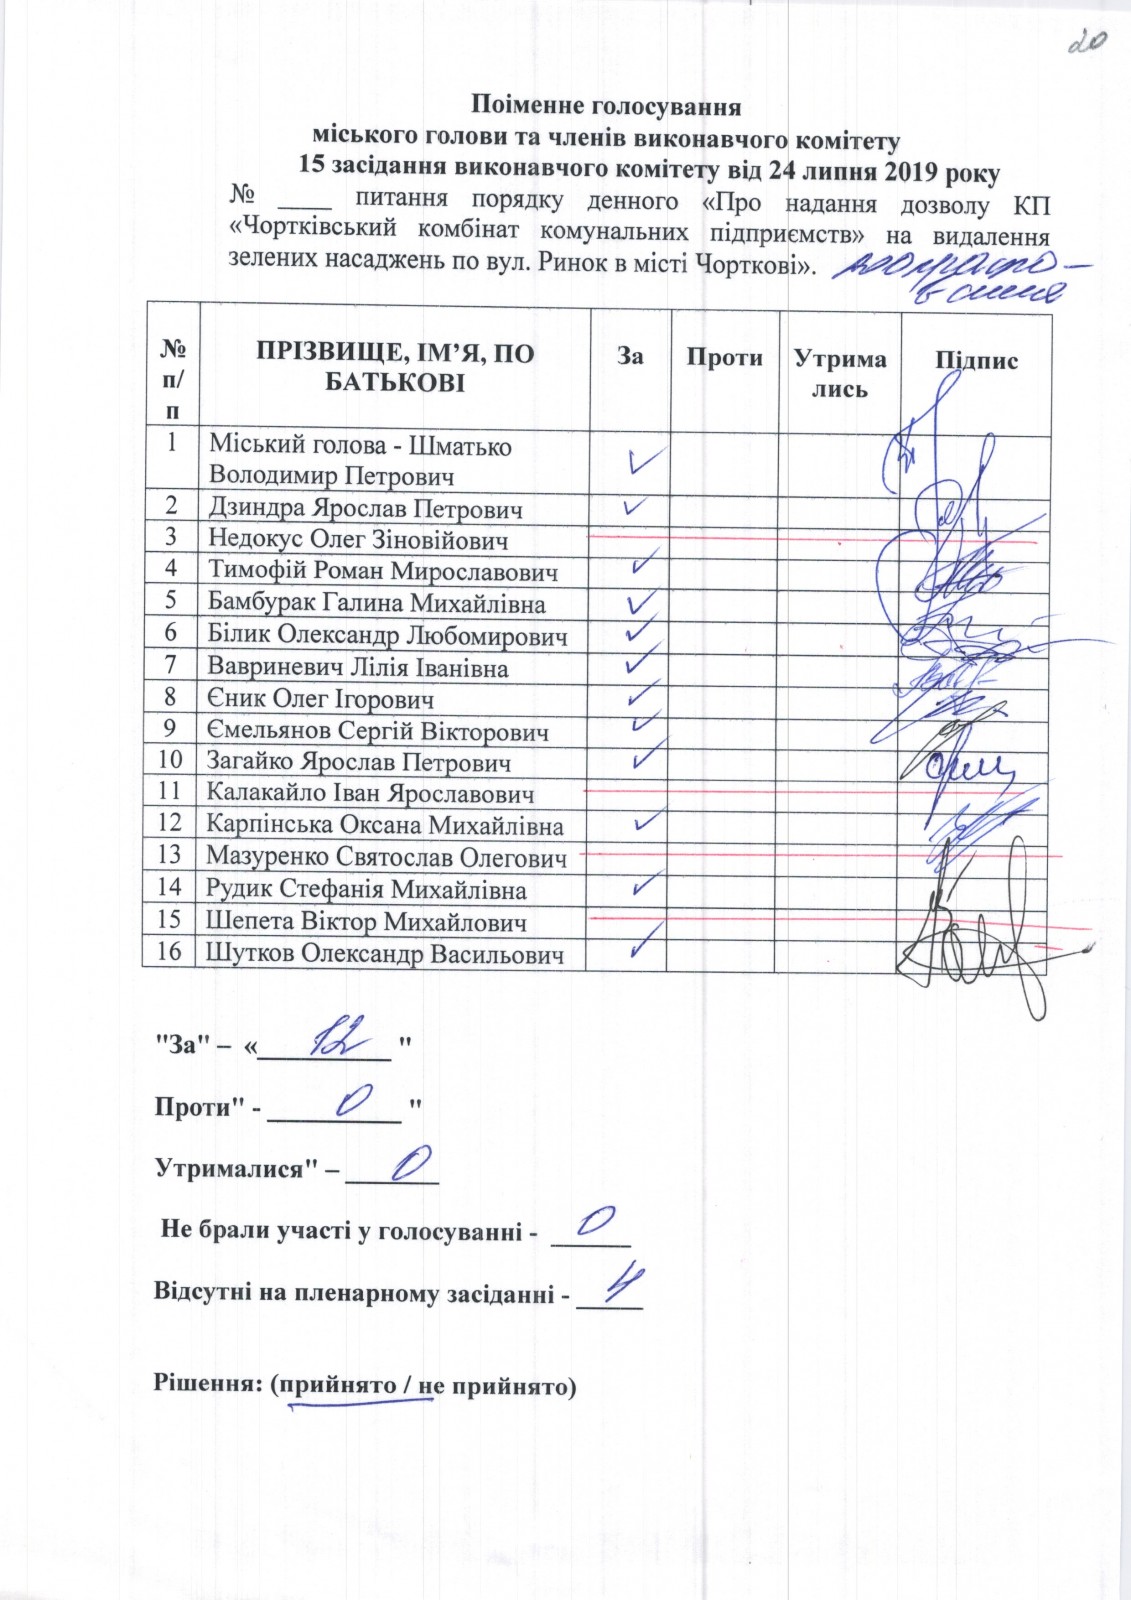 20
Поіменне голосування
міського голови та членів виконавчого комітету
15 засідання виконавчого комітету від 24 липня 2019 року
№ ____ питання порядку денного «Про надання дозволу КП
«Чортківський комбінат комунальних підприємств» на видалення
зелених насаджень по вул. Ринок в місті Чорткові».
№ п/п ПРІЗВИЩЕ, ІМ’Я, ПО БАТЬКОВІ За Проти Утрима лись Підпис
1 Міський голова - Шматько
Володимир Петрович ✓
2 Дзиндра Ярослав Петрович ✓
3 Недокус Олег Зіновійович
4 Тимофій Роман Мирославович ✓
5 Бамбурак Галина Михайлівна ✓
6 Білик Олександр Любомирович ✓
7 Вавриневич Лілія Іванівна ✓
8 Єник Олег Ігорович ✓
9 Ємельянов Сергій Вікторович ✓
10 Загайко Ярослав Петрович ✓
11 Калакайло Іван Ярославович
12 Карпінська Оксана Михайлівна ✓
13 Мазуренко Святослав Олегович
14 Рудик Стефанія Михайлівна ✓
15 Шепета Віктор Михайлович
16 Шутков Олександр Васильович ✓
"За" – «__12__"
Проти" - __0__"
Утрималися" – __0__
Не брали участі у голосуванні - __0__
Відсутні на пленарному засіданні - __4__
Рішення: (прийнято / не прийнято)